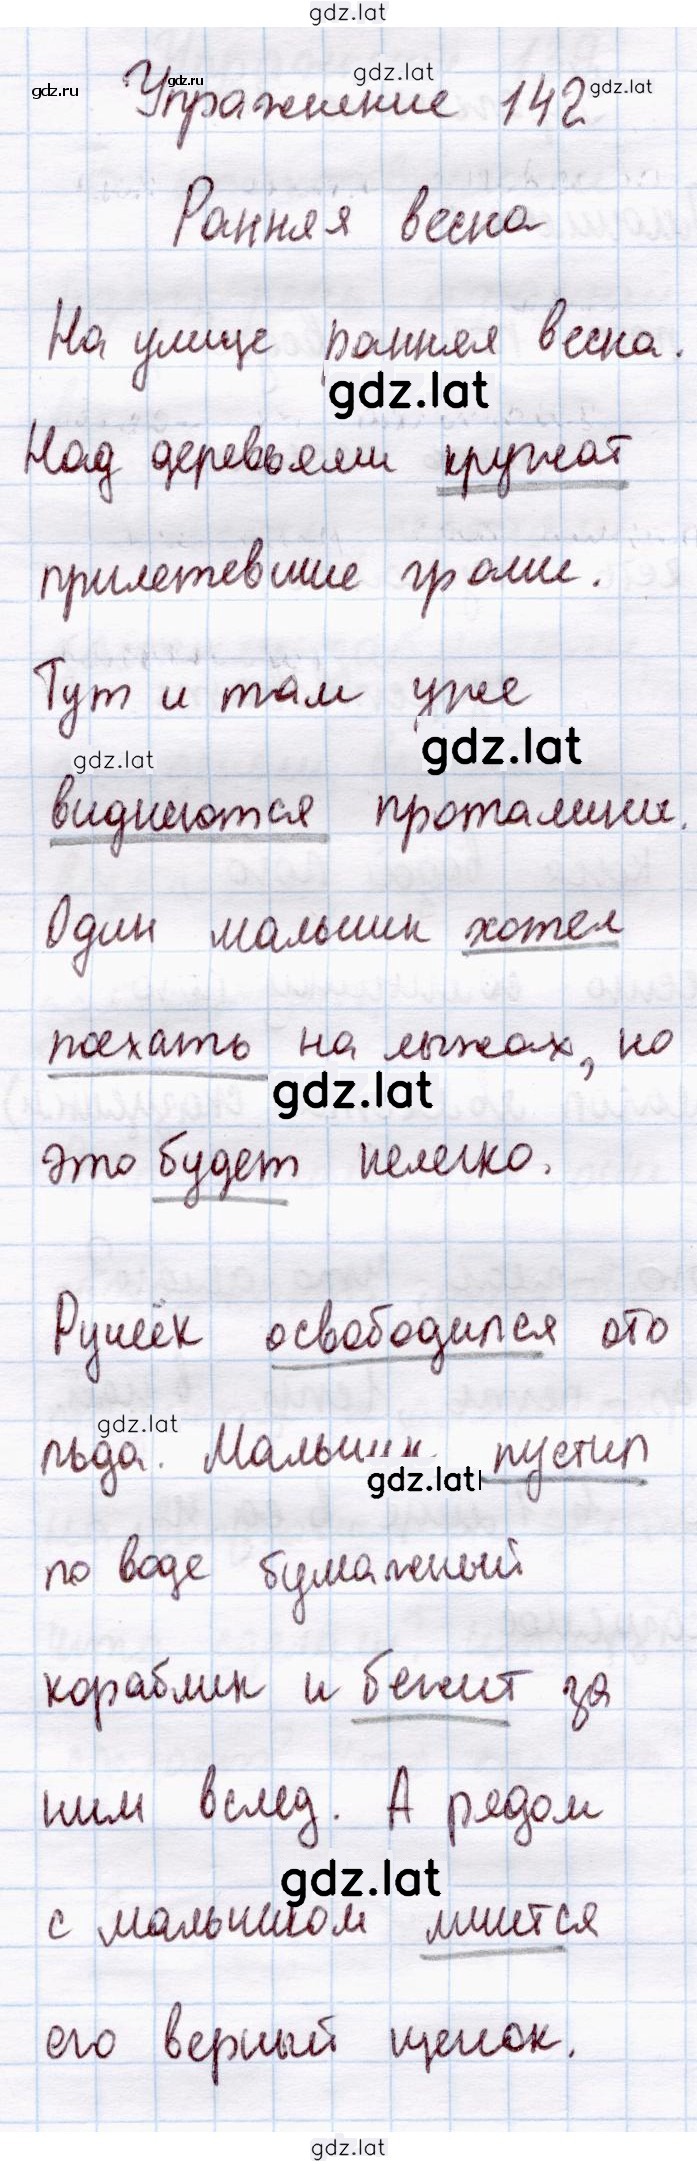 gdz.lat
gdz.ru gdz.ru gdz.lat gdz.lat
Упражнение 142
Ранняя весна
На улице ранняя весна.
gdz.lat
Над деревьями кружат
прилетевшие грачи.
Тут и там уже
gdz.lat gdz.lat
виднеются проталины.
Один мальчик хотел
поехать на лыжах, но
gdz.lat
это будет нелегко.
Ручеёк освободился ото
gdz.lat
льда. Мальчик пустил
gdz.lat
по воде бумажный
кораблик и бежит за
ним вслед. А рядом
gdz.lat
с мальчиком мчится
его верный щенок.
gdz.lat